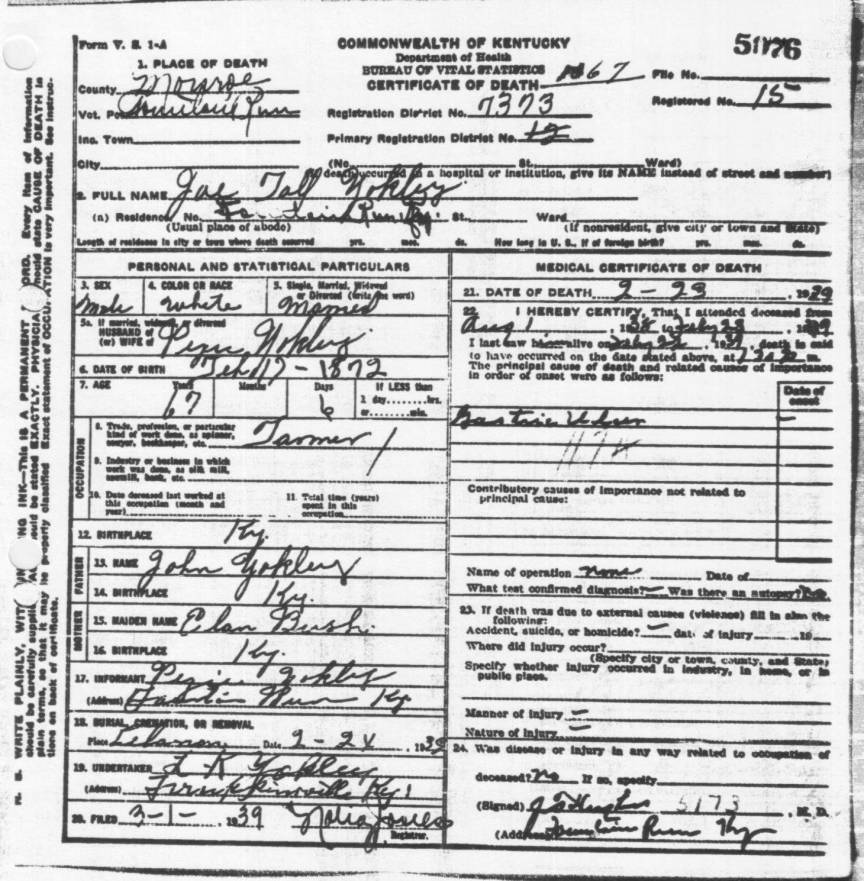 Form V. S. 1-A
COMMONWEALTH OF KENTUCKY
Department of Health
BUREAU OF VITAL STATISTICS
CERTIFICATE OF DEATH
5176
File No.
Registered No. 15
1. PLACE OF DEATH
County Monroe
Vot. Pct. Fountain Run
Inc. Town
City
Registration District No. 7373
Primary Registration District No.
(No. St. Ward)
(If death occurred in a hospital or institution, give its NAME instead of street and number)
2. FULL NAME Joe Tall Yokley
(a) Residence. No. Fountain Run Ky. St. Ward
(Usual place of abode) (If nonresident, give city or town and State)
Length of residence in city or town where death occurred yrs. mos. ds. How long in U. S., if of foreign birth? yrs. mos. ds.
PERSONAL AND STATISTICAL PARTICULARS
3. SEX Male
4. COLOR OR RACE White
5. Single, Married, Widowed or Divorced (write the word) Married
5a. If married, widowed or divorced
HUSBAND of
(or) WIFE of Yokley
6. DATE OF BIRTH Feb 17 - 1872
7. AGE Years Months Days If LESS than
67 6 1 day........hrs.
or........min.
OCCUPATION
8. Trade, profession, or particular
kind of work done, as spinner,
sawyer, bookkeeper, etc. Farmer
9. Industry or business in which
work was done, as silk mill,
sawmill, bank, etc.
10. Date deceased last worked at
this occupation (month and
year)
11. Total time (years)
spent in this
occupation
12. BIRTHPLACE Ky.
FATHER
13. NAME John Yokley
14. BIRTHPLACE Ky.
MOTHER
15. MAIDEN NAME Bush
16. BIRTHPLACE Ky.
17. INFORMANT Yokley
(Address) Fountain Run Ky
18. BURIAL, CREMATION, OR REMOVAL
Place Lebanon Date 2-24, 1939
19. UNDERTAKER Yokley
(Address) Ky
20. FILED 3-1-, 1939 Jones
Registrar.
MEDICAL CERTIFICATE OF DEATH
21. DATE OF DEATH 2-23, 1939
22. I HEREBY CERTIFY, That I attended deceased from
Aug 1, 1938 to Feb 23, 1939
I last saw him alive on Feb 1939, death is said
to have occurred on the date stated above, at m.
The principal cause of death and related causes of importance
in order of onset were as follows:
Date of
onset
Gastric Ulcer
117a
Contributory causes of importance not related to
principal cause:
Name of operation none Date of
What test confirmed diagnosis? — Was there an autopsy?
23. If death was due to external causes (violence) fill in also the
following:
Accident, suicide, or homicide? — date of injury , 19
Where did injury occur?
(Specify city or town, county, and State)
Specify whether injury occurred in industry, in home, or in
public place.
Manner of injury —
Nature of injury —
24. Was disease or injury in any way related to occupation of
deceased? no If so, specify
(Signed) Hughes 5173, M. D.
(Address) Fountain Run Ky
N. B. WRITE PLAINLY, WITH UNFADING INK—THIS IS A PERMANENT RECORD. Every item of information
should be carefully supplied. AGE should be stated EXACTLY. PHYSICIANS should state CAUSE OF DEATH in
plain terms, so that it may be properly classified. Exact statement of OCCUPATION is very important. See instruc-
tions on back of certificate.